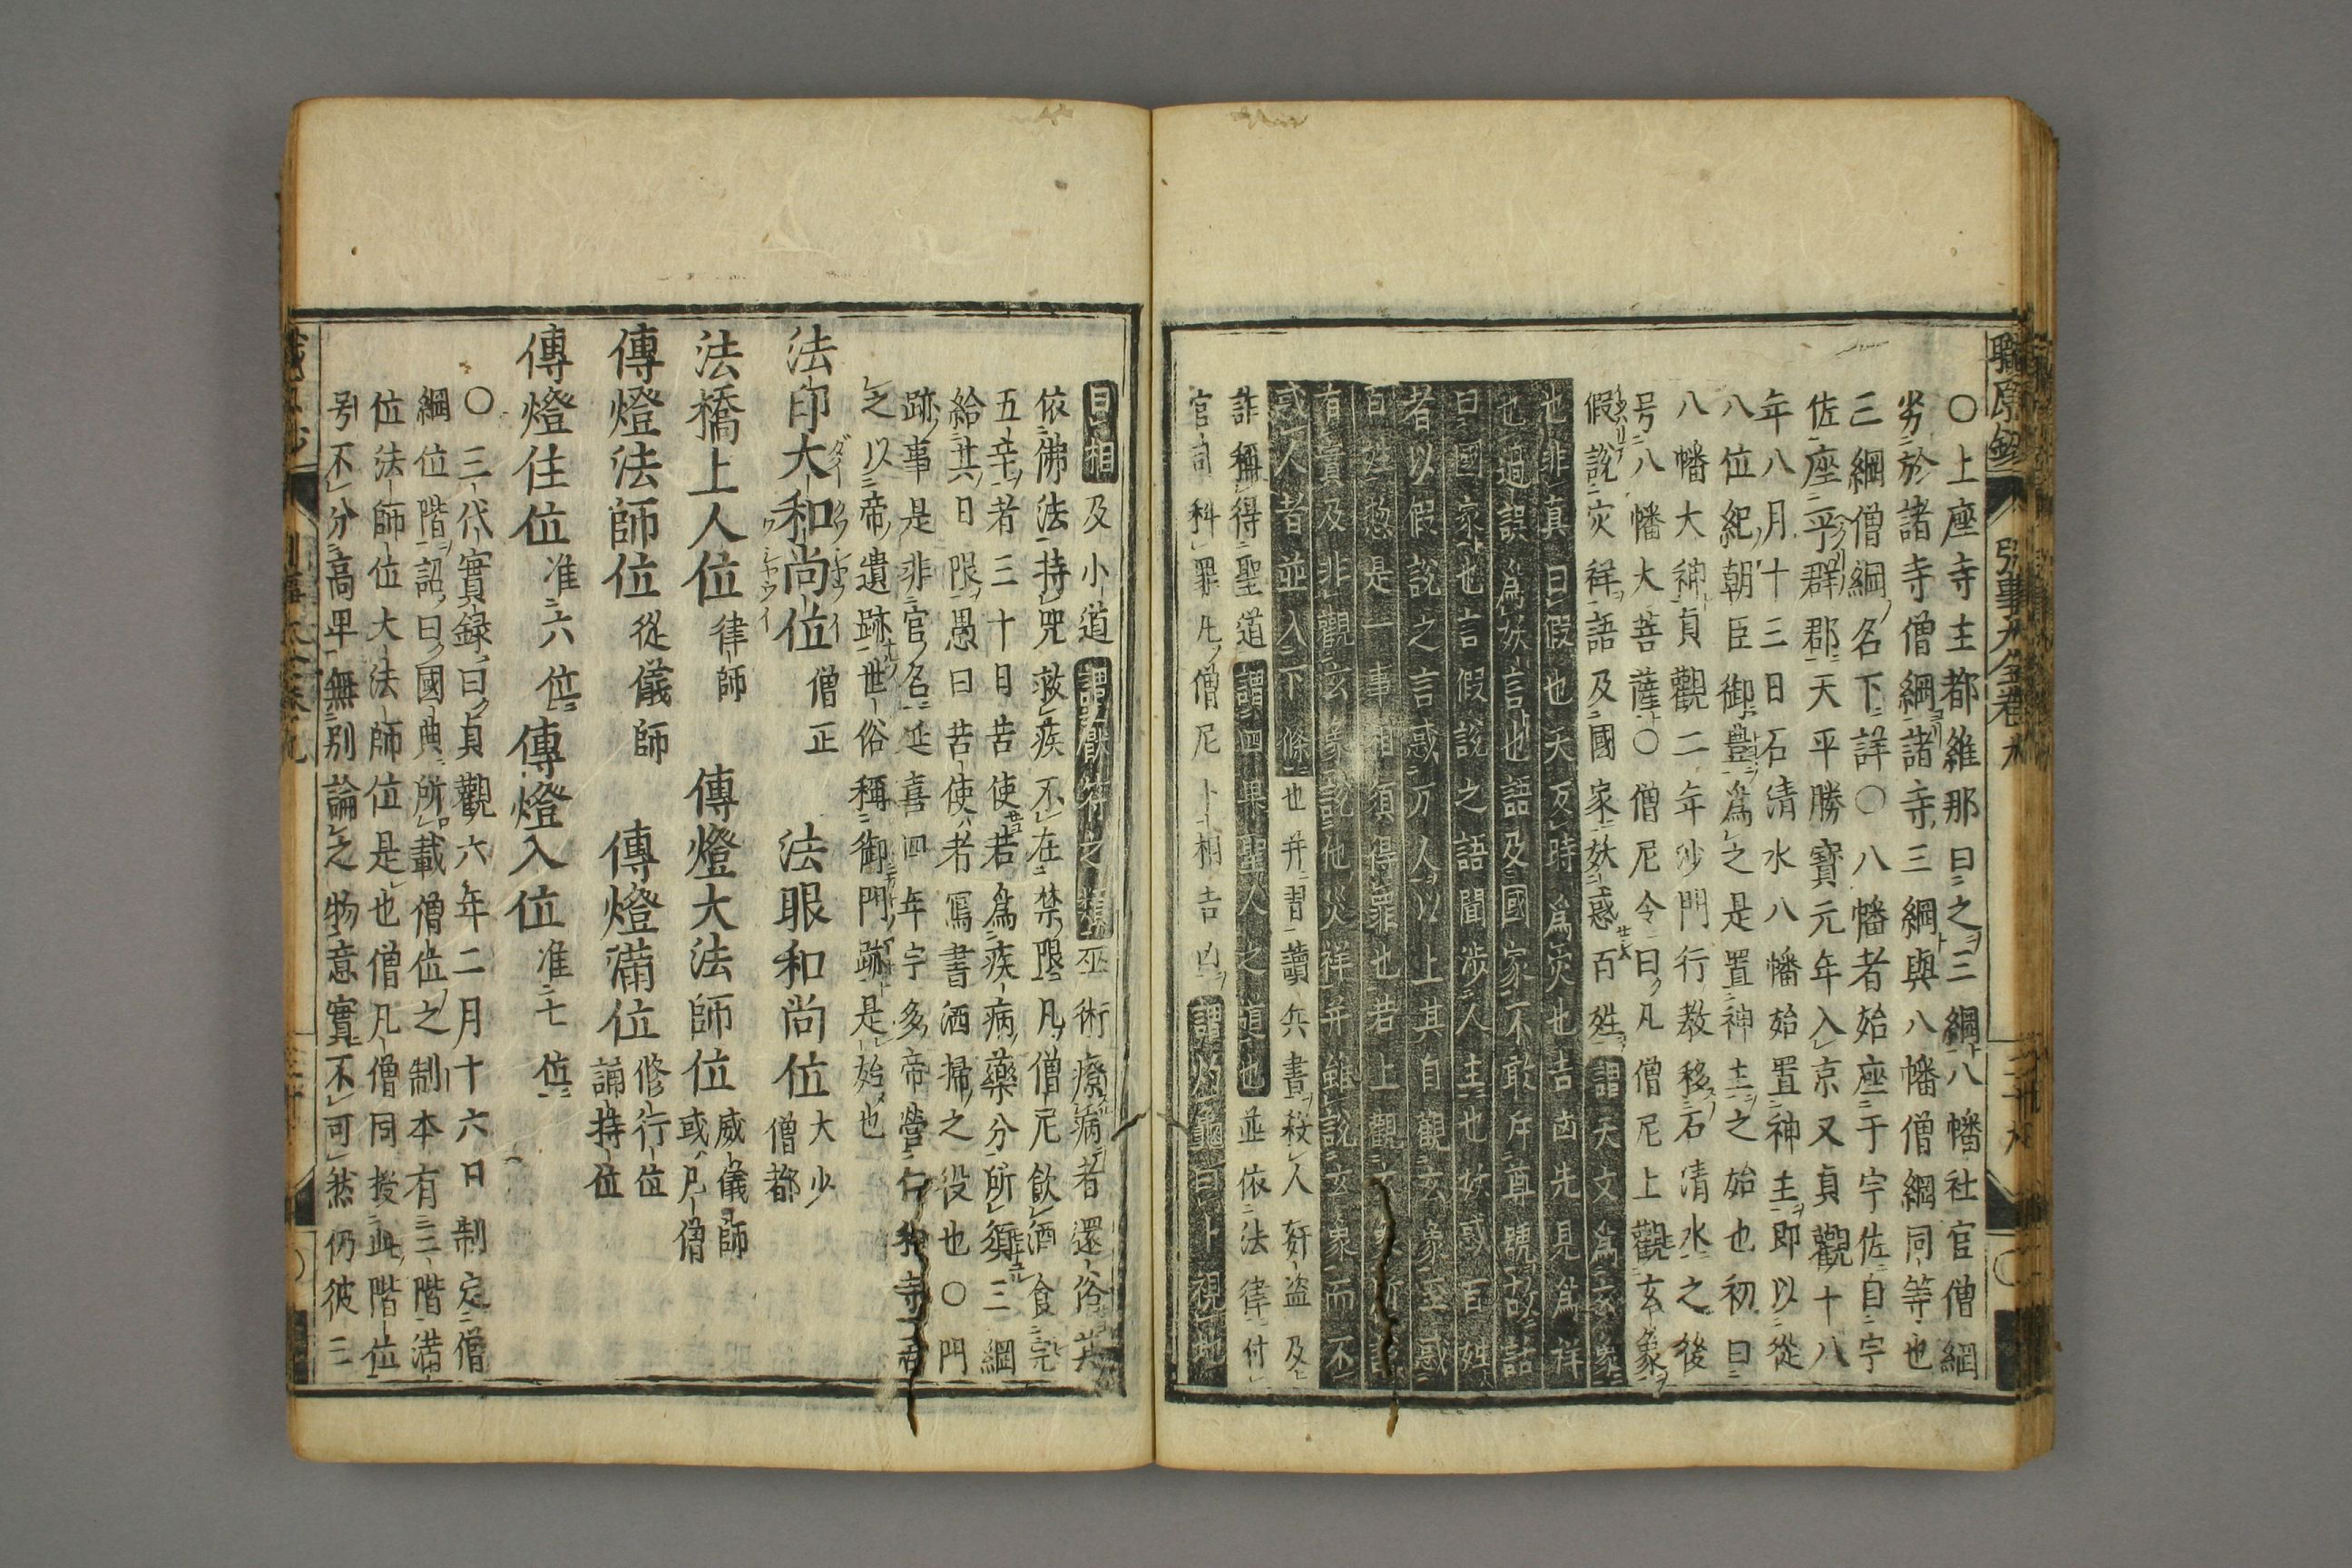 職原鈔 引事大全卷九
○上座寺主都維那曰之三綱八幡社官僧綱
劣於諸寺僧綱諸寺三綱與八幡僧綱同等也
三綱僧綱名下詳○八幡者始座于宇佐自宇
佐座乎群郡天平勝寶元年入京又貞觀十八
年八月十三日石清水八幡始置神主即以從
八位紀朝臣御豊爲之是置神主之始也初曰
八幡大神貞觀二年沙門行教移石清水之後
号八幡大菩薩○僧尼令曰凡僧尼上觀玄象
假說灾祥語及國家妖惑百姓謂天文爲玄象
也非真曰假也天反時爲灾也吉凶先見爲祥
也過誤爲妖言也語及國家不敢斥尊號故詁
曰國家也言假說之語關涉人主也妖惑百姓
者以假說之言惑万人以上其自觀玄象至惑
百姓惣是一事相須得罪也若上觀玄象所說
有實及非觀玄象說他災祥并雖說玄象而不
惑人者並入下條也并習讀兵書殺人奸盗及
詐稱得聖道謂四果聖人之道也並依法律付
官司科罪凡僧尼卜相吉凶謂灼龜曰卜視地
曰相及小道謂厭符之類巫術療病者還俗其
依佛法持呪救疾不在禁限凡僧尼飲酒食宍
五辛者三十日苦使若爲疾病藥分所須三綱
給其日限愚曰苦使者寫書洒掃之役也○門
跡事是非官名延喜四年宇多帝營仁和寺居
之以帝遺跡世俗稱御門跡是始也
法印大和尚位 僧正 法眼和尚位 大少僧都
法橋上人位 律師 傳燈大法師位 威儀師或凡僧
傳燈法師位 從儀師 傳燈滿位 修行位誦持位
傳燈住位 准六位 傳燈入位 准七位
○三代實録曰貞觀六年二月十六日制定僧
綱位階詔曰國典所載僧位之制本有三階滿
位法師位大法師位是也僧凡僧同授此階位
号不分高卑無別論之物意實不可然仍彼三